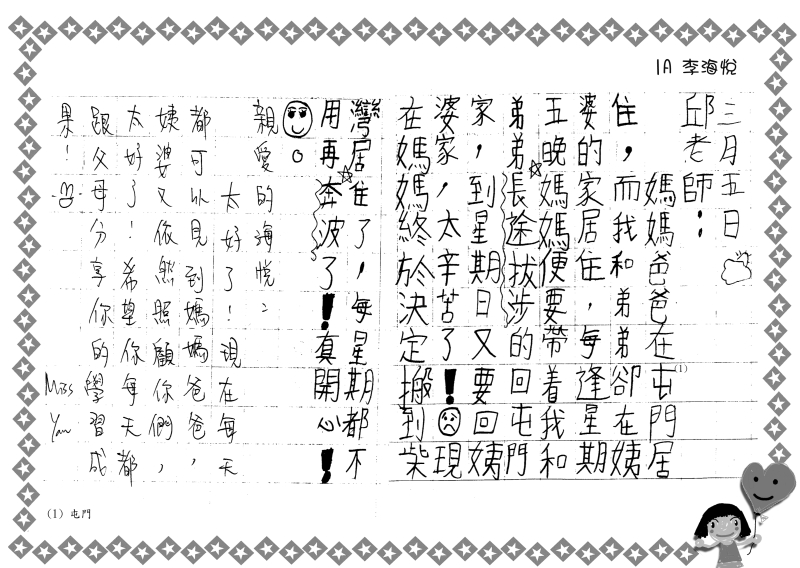 1A 李海悅
三月五日
邱老師：
媽媽爸爸在屯(1)門居
住，而我和弟弟卻在姨
婆的家居住，每逢星期
五晚媽媽便要帶着我和
弟弟長途拔涉的回屯門
家，到星期日又要回姨
婆家，太辛苦了！現
在媽媽終於決定搬到柴
灣居住了，每星期都不
用再奔波了！真開心！
親愛的海悅：
太好了！現在每天
都可以見到媽媽爸爸，
姨婆又依然照顧你們，
太好了！希望你每天都
跟父母分享你的學習成
果！
Miss
(1) 屯門